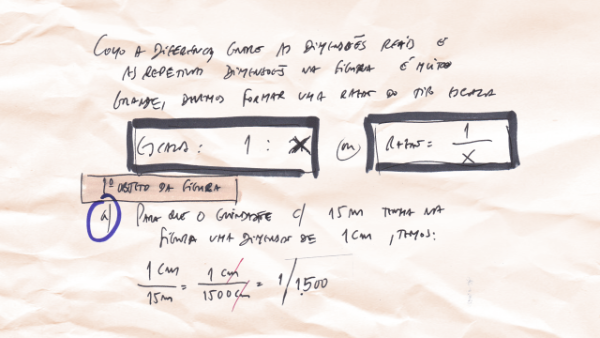 COMO A DIFERENÇA ENTRE AS DIMENSÕES REAIS E
AS REPETIVAS DIMENSÕES NA FIGURA É MUITO
GRANDE, VAMOS FORMAR UMA RAZÃO DO TIPO ESCALA
ESCALA: 1 : X ou RAZÃO = 1/X
1º OBJETO DA FIGURA
a) PARA QUE O GUINDASTE C/ 15m TENHA NA
FIGURA UMA DIMENSÃO DE 1cm, TEMOS:
1cm/15m = 1cm/1500cm = 1/1.500